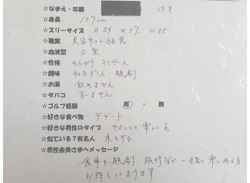 ☆なまえ・年齢
☆身長 157cm
☆スリーサイズ
☆職業 美容サロン経営
☆血液型 O型
☆性格 マイペース
☆趣味 社交ダンス・観劇
☆お酒 飲めません
☆タバコ 吸いません
☆ゴルフ経験 ・無
☆好きな食べ物 デザート
☆好きな男性のタイプ やさしくて楽しい方
☆似ている?有名人
☆男性会員さまへメッセージ
食事や、観劇・旅行など一緒に楽しめる方
お待ちしております